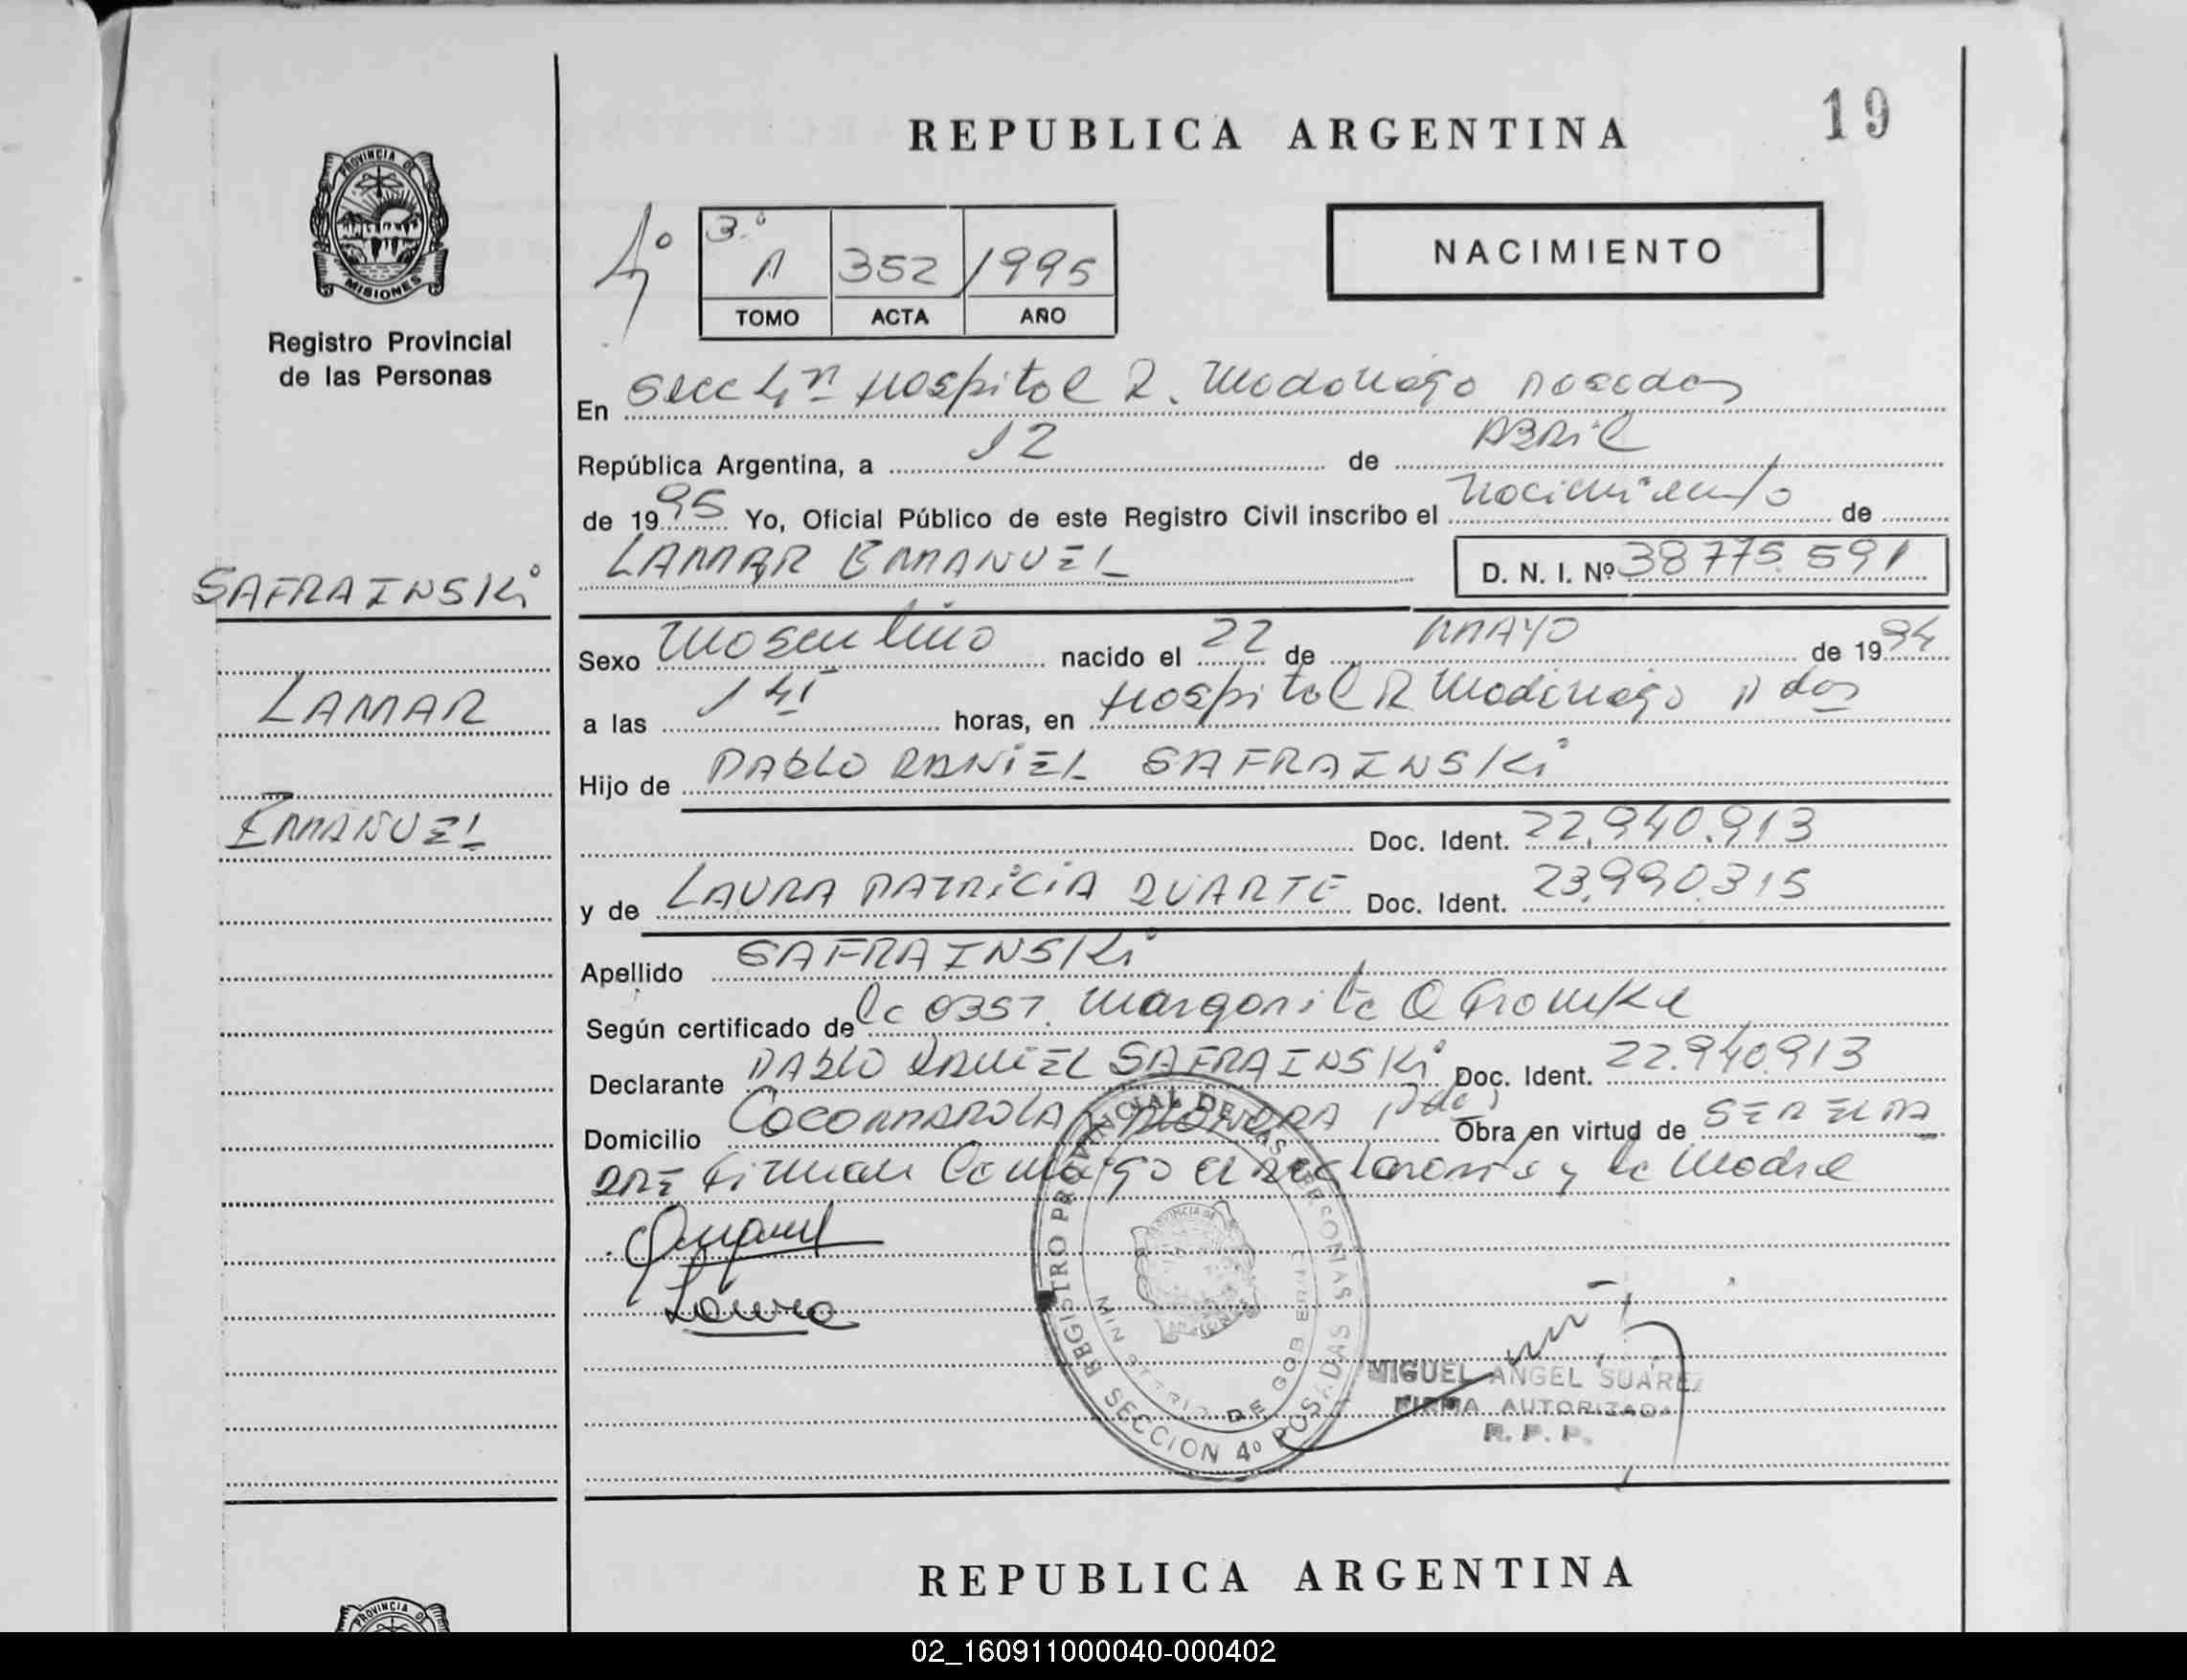 REPUBLICA ARGENTINA
19
PROVINCIA DE
MISIONES
Registro Provincial
de las Personas
4º
3º
A 352 1995
TOMO ACTA AÑO
NACIMIENTO
En Secc 4ª Hospital R. Madariaga Posadas
República Argentina, a 12 de ABRIL
de 1995 Yo, Oficial Público de este Registro Civil inscribo el Nacimiento de
LAMAR EMANUEL
D. N. I. Nº 38775.591
SAFRAINSKI
LAMAR
EMANUEL
Sexo Masculino nacido el 22 de MAYO de 1994
a las horas, en Hospital R Madariaga Pdas
Hijo de PABLO DANIEL SAFRAINSKI
Doc. Ident. 22.940.913
y de LAURA PATRICIA DUARTE Doc. Ident. 23.990.315
Apellido SAFRAINSKI
Según certificado de la 0357. Margarita
Declarante PABLO DANIEL SAFRAINSKI Doc. Ident. 22.940.913
Domicilio Pdas Obra en virtud de SER EL PA
DRE Firman Conmigo el declarante y la Madre
Laura
REGISTRO PROVINCIAL DE LAS PERSONAS
MINISTERIO DE GOBIERNO
SECCION 4º POSADAS
MIGUEL ANGEL SUAREZ
FIRMA AUTORIZADA
R. P. P.
REPUBLICA ARGENTINA
PROVINCIA DE
02_160911000040-000402